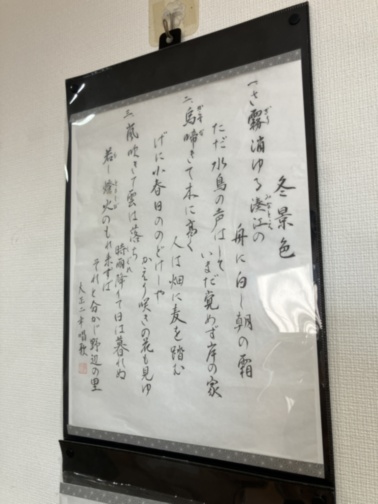 冬景色
一、さ霧消ゆる湊江の
舟に白し朝の霜
ただ水鳥の声はして
いまだ覚めず岸の家
二、烏啼きて木に高く
人は畑に麦を踏む
げに小春日ののどけしや
かえり咲きの花も見ゆ
三、嵐吹きて雲は落ち
時雨降りて日は暮れぬ
若し燈火のもれ来ずば
それと分かじ野辺の里
大正二年唱歌